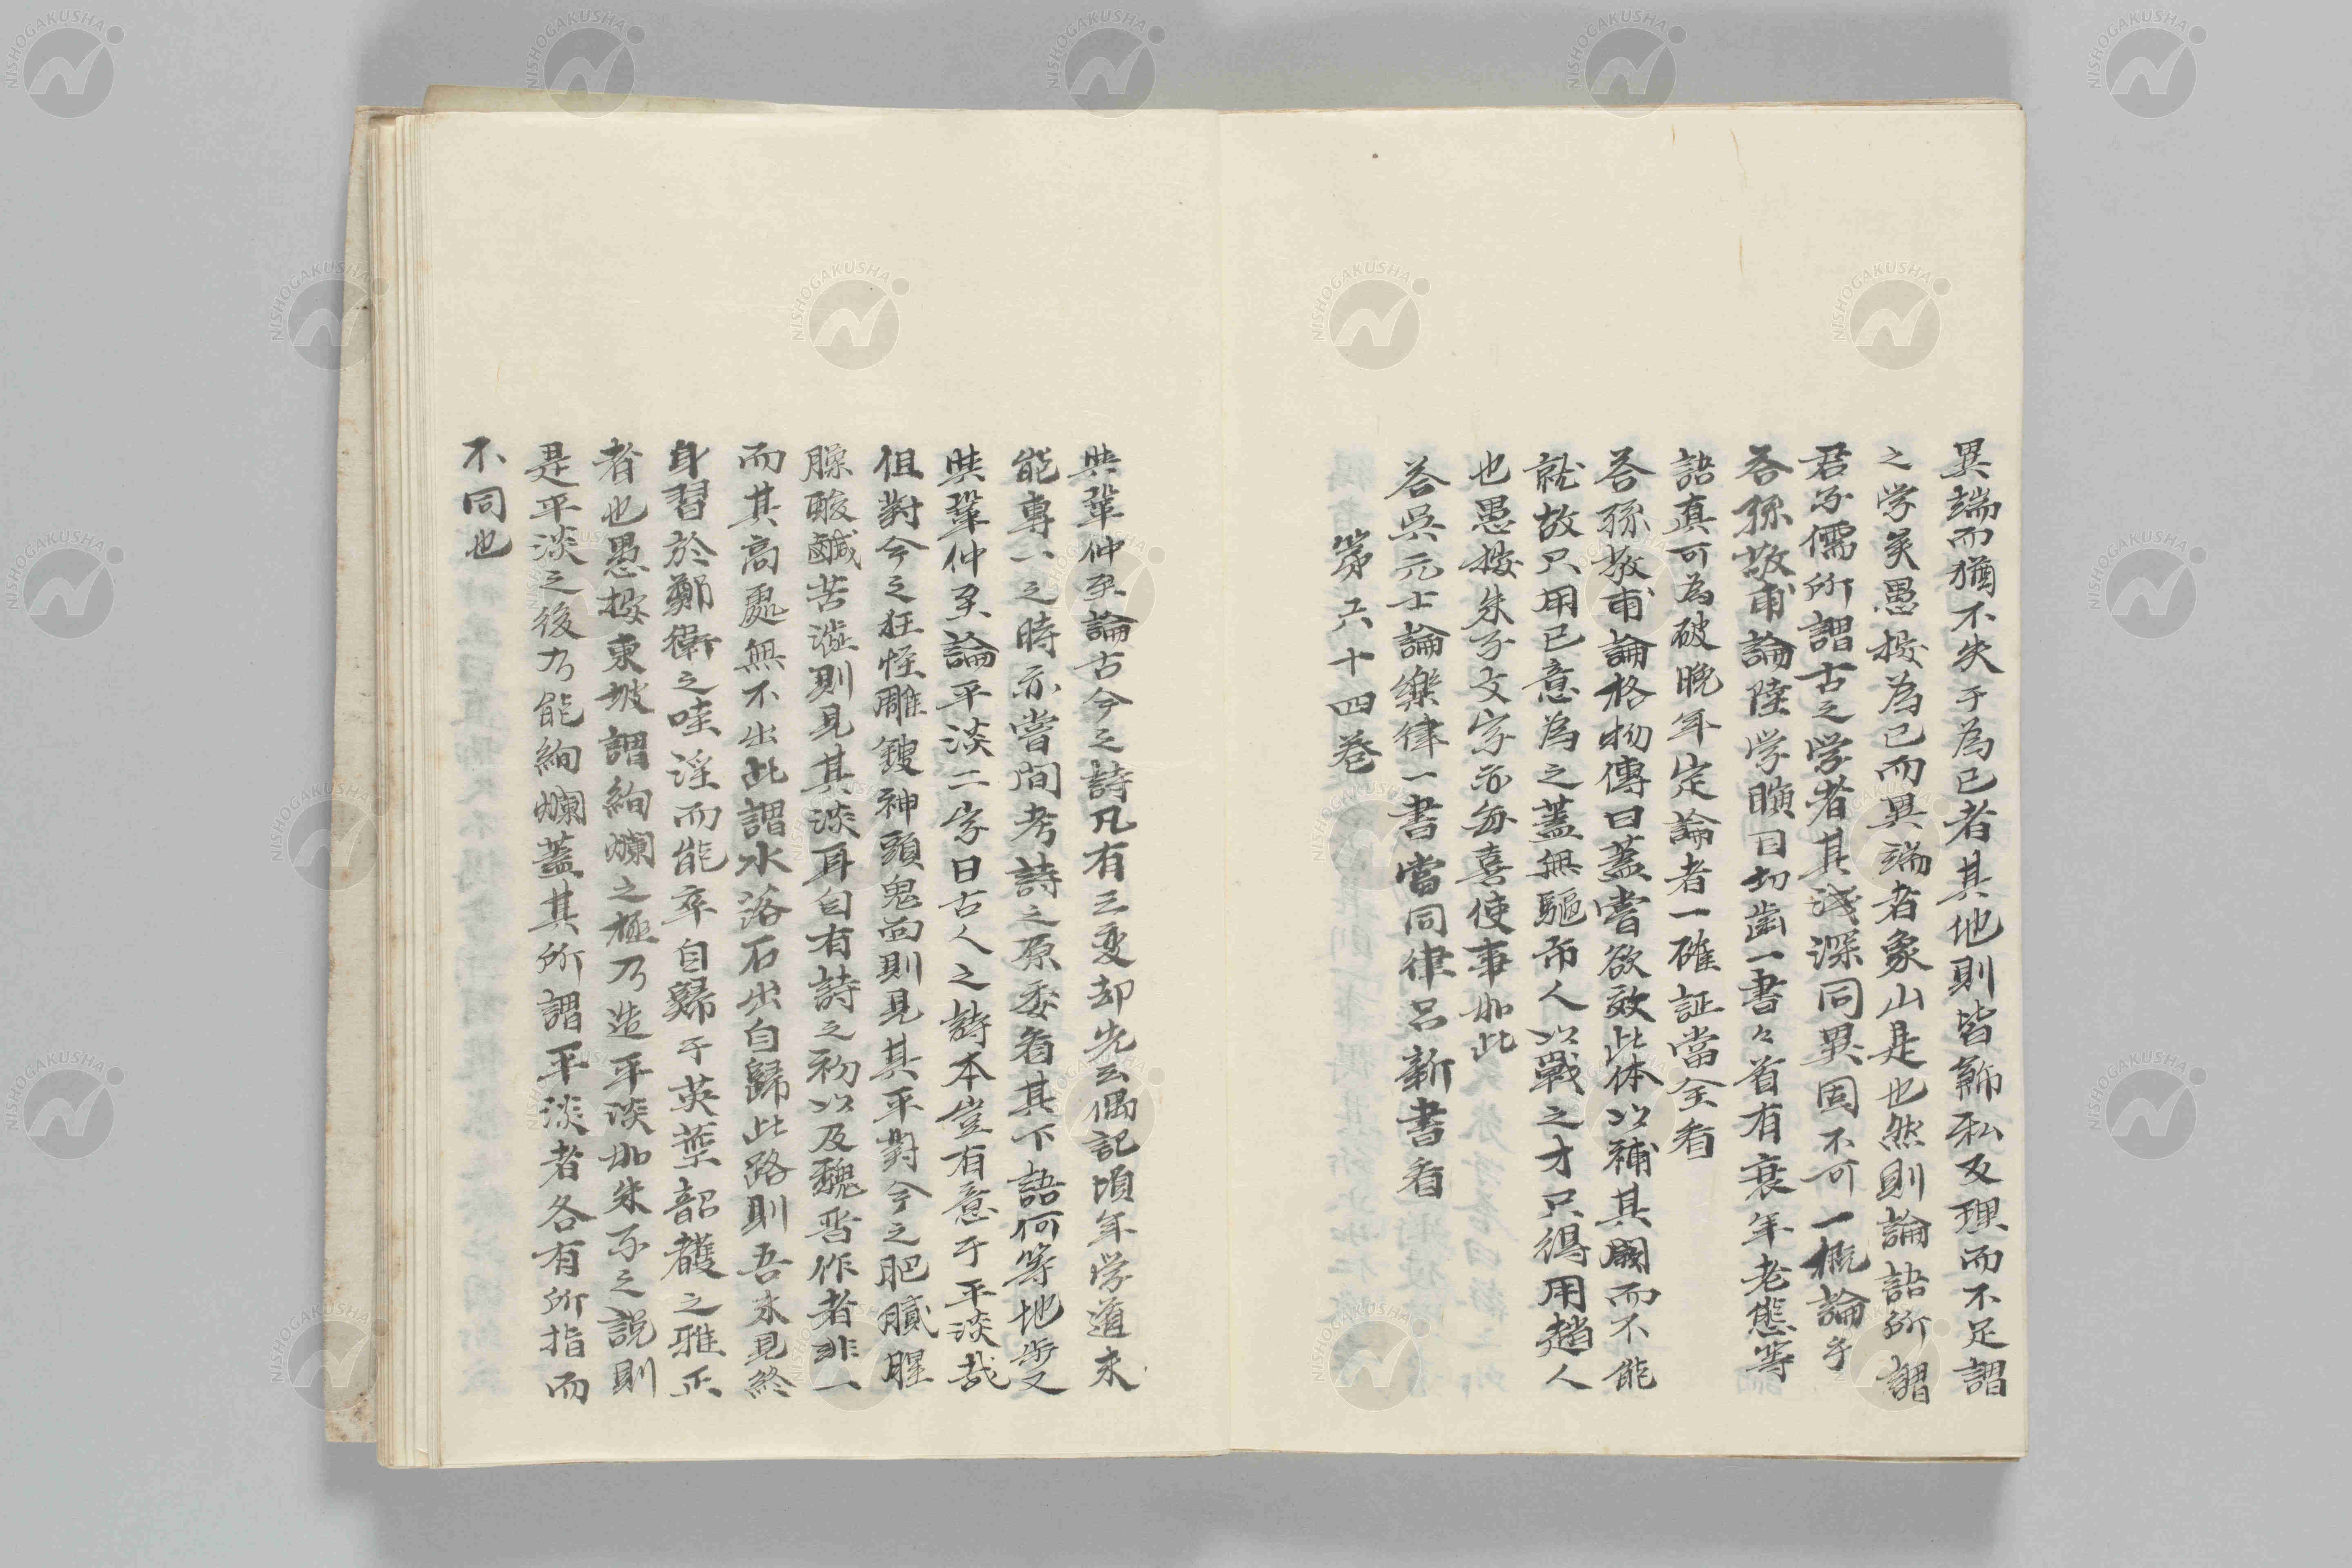 異端而猶不失于為己者其他則皆歸私反理而不足謂
之学矣愚按為己而異端者象山是也然則論語所謂
君子儒所謂古之学者其浅深同異固不可一概論乎
答孫敬甫論陸学瞋目切歯一書々首有衰年老態等
語真可為破晩年定論者一確証當全看
答孫敬甫論格物傳曰蓋嘗欲效此体以補其闕而不能
就故只用己意為之蓋無驅市人以戰之才只得用趙人
也愚按朱子文字亦每喜使事如此
答吳元士論樂律一書當同律呂新書看
第六十四卷
與鞏仲至論古今之詩凡有三変却先云偶記頃年学道未
能専一之時亦嘗間考詩之原委看其下語何等地歩又
與鞏仲至論平淡二字曰古人之詩本豈有意于平淡哉
但對今之狂怪雕鎪神頭鬼面則見其平對今之肥膩腥
臊酸鹹苦澁則見其淡耳自有詩之初以及魏晋作者非一
而其高處無不出此謂水落石出自歸此路則吾未見終
身習於鄭衛之哇淫而能卒自歸于英莖韶頀之雅正
者也愚按東坡謂絢爛之極乃造平淡如朱子之説則
是平淡之後乃能絢爛蓋其所謂平淡者各有所指而
不同也
NISHOGAKUSHA